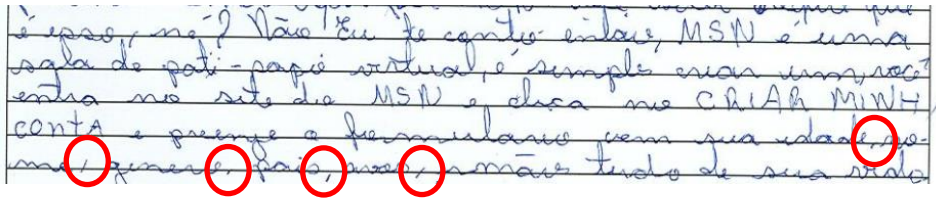 é isso, né? Não Eu te conto então, MSN é uma
sala de pati-papo virtual, é simples criar um, você
entra no site do MSN e clica no CRIAR MINH
CONTA e preenje o formulario com sua idade, no-
me, genero, pais, avos, irmãos tudo de sua vida